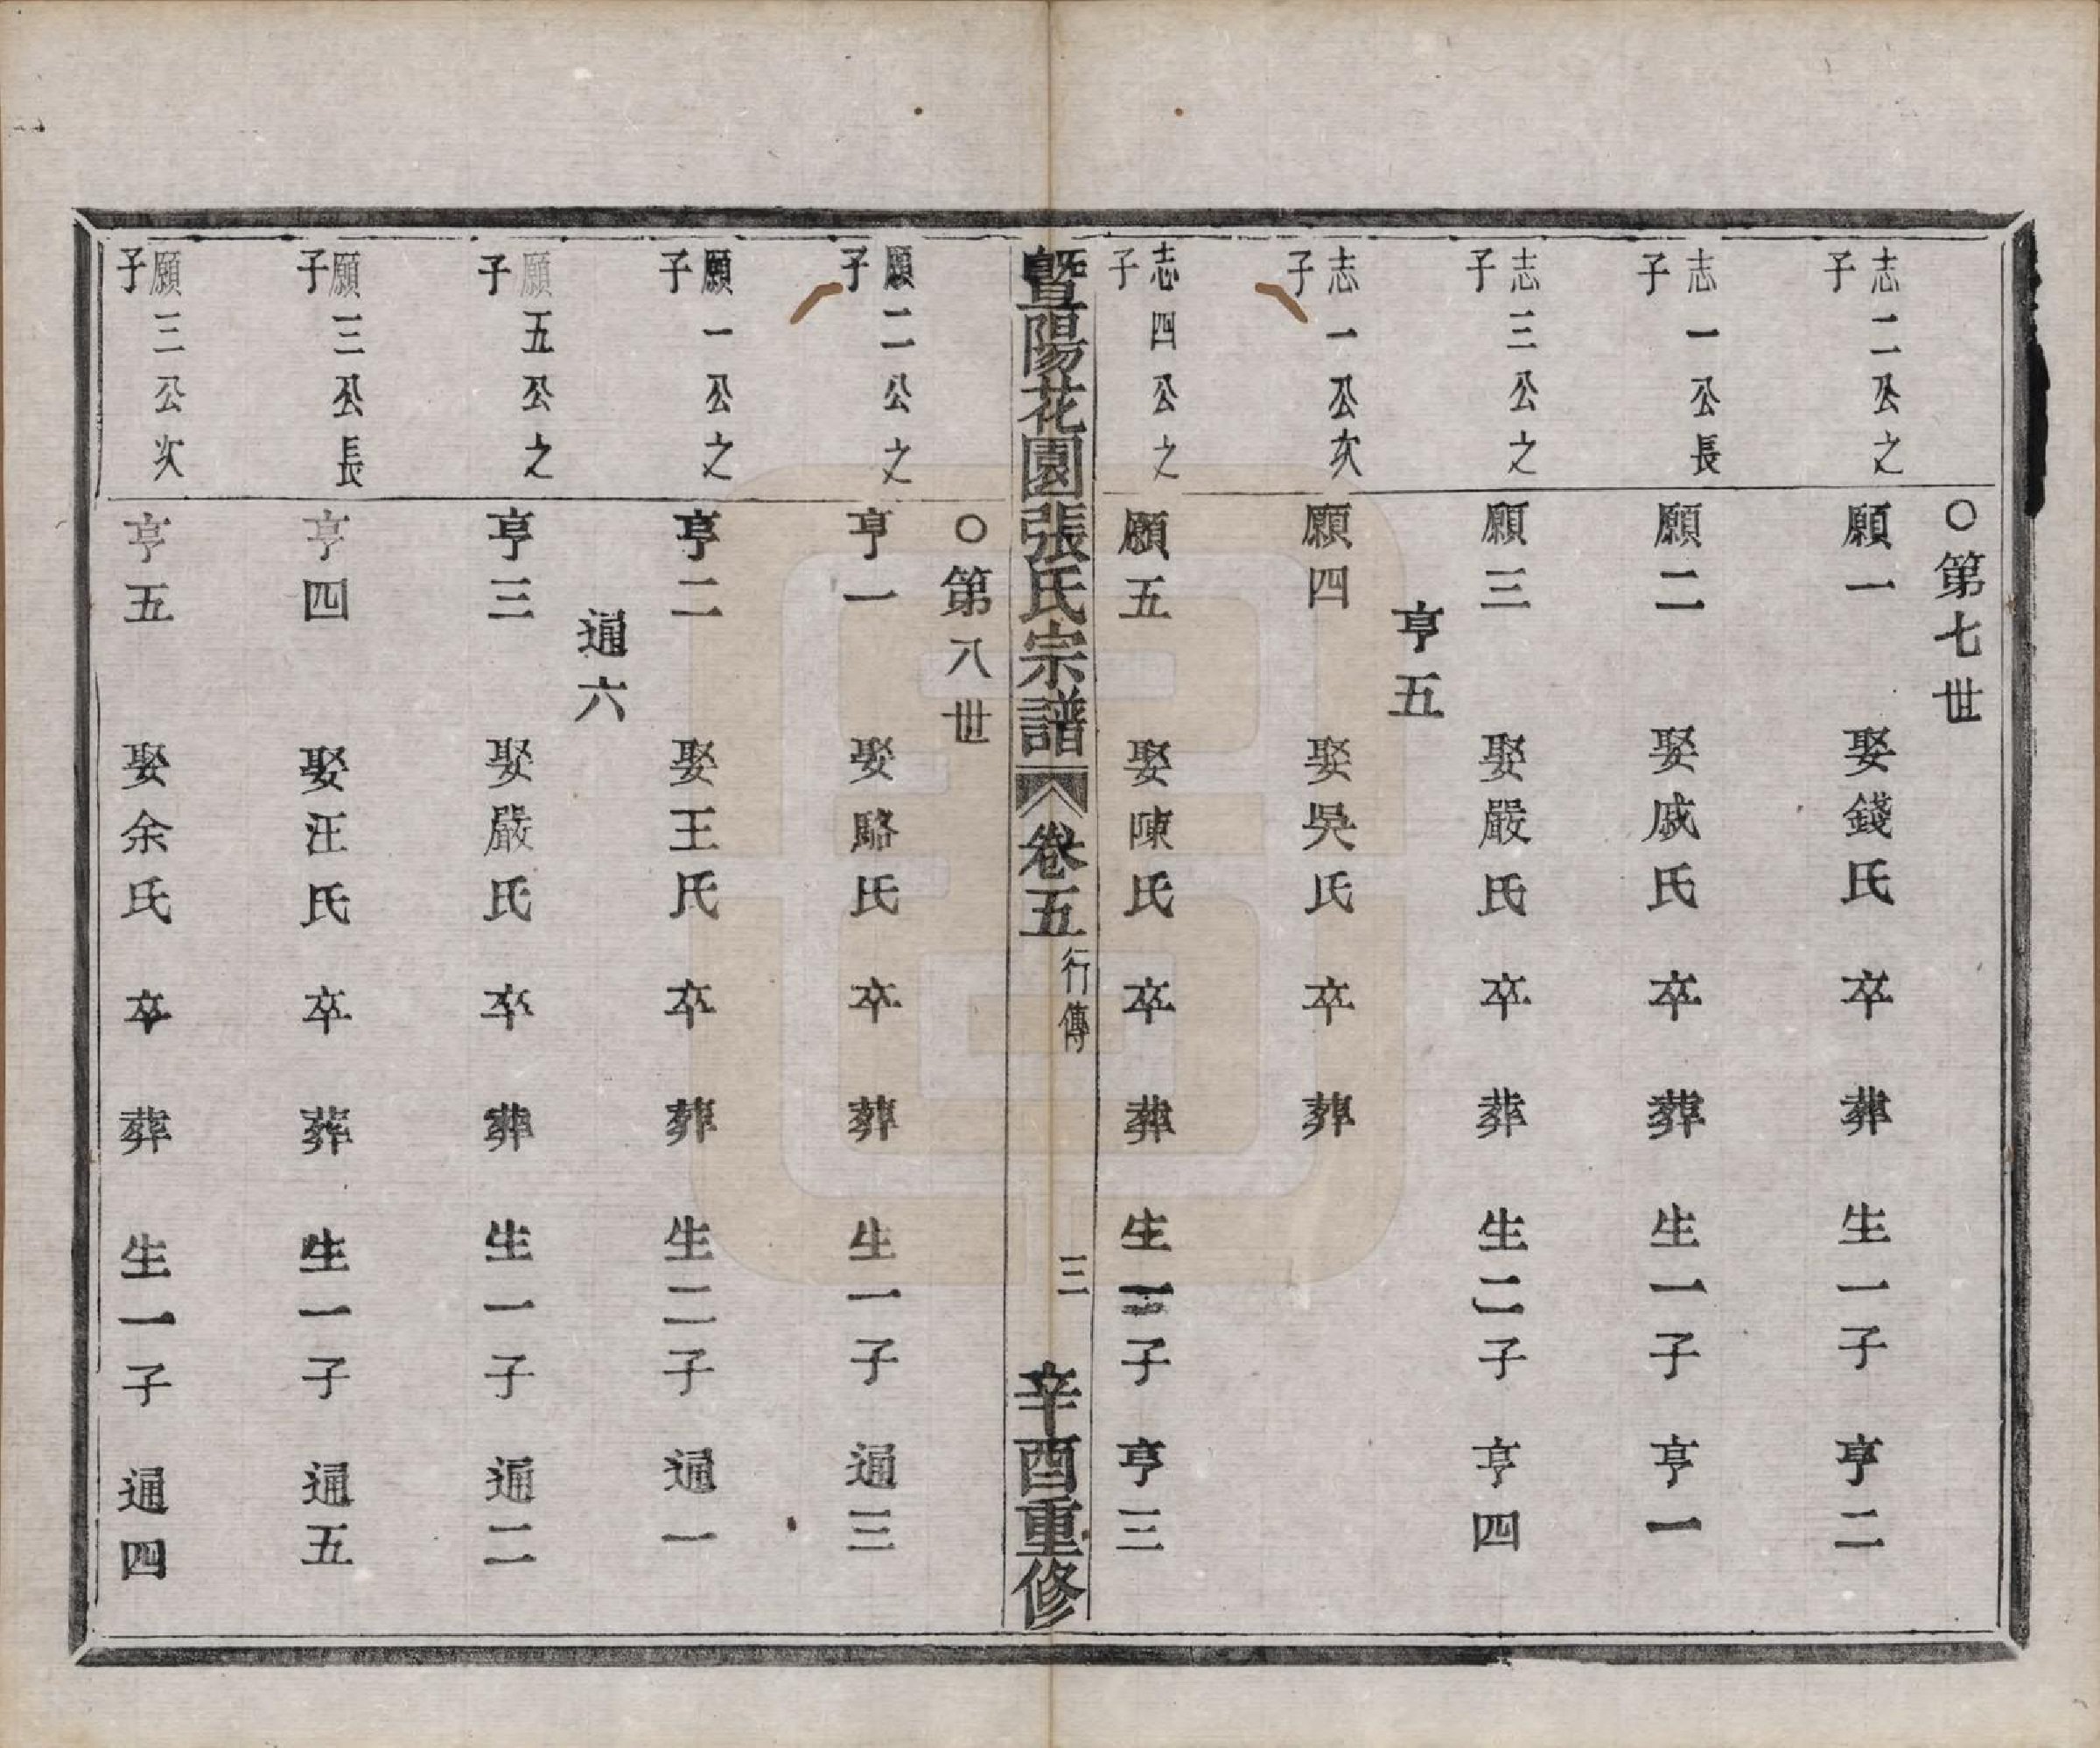 ○第七世
志二公之子
願一　娶錢氏　卒　葬　生一子　亨二
志一公長子
願二　娶戚氏　卒　葬　生一子　亨一
志三公之子
願三　娶嚴氏　卒　葬　生二子　亨四
亨五
志一公次子
願四　娶吳氏　卒　葬
志四公之子
願五　娶陳氏　卒　葬　生一子　亨三
暨陽花園張氏宗譜　卷五　行傳　三　辛酉重修
○第八世
願二公之子
亨一　娶駱氏　卒　葬　生一子　通三
願一公之子
亨二　娶王氏　卒　葬　生二子　通一
通六
願五公之子
亨三　娶嚴氏　卒　葬　生一子　通二
願三公長子
亨四　娶汪氏　卒　葬　生一子　通五
願三公次子
亨五　娶余氏　卒　葬　生一子　通四